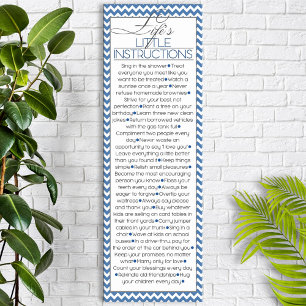 Life's
LITTLE
INSTRUCTIONS
Sing in the shower•Treat
everyone you meet like you
want to be treated•Watch a
sunrise once a year•Never
refuse homemade brownies•
Strive for your best, not
perfection•Plant a tree on your
birthday•Learn three new clean
jokes•Return borrowed vehicles
with the gas tank full•
Compliment two people every
day•Never waste an
opportunity to say "I love you"•
Leave everything a little better
than you found it•Keep things
simple•Relish small pleasures•
Become the most encouraging
person you know•Floss your
teeth every day•Always be
eager to forgive•Overtip your
waitress•Always say please
and thank you•Buy whatever
kids are selling on card tables in
their front yards•Carry jumper
cables in your trunk•Sing in a
choir•Wave at kids on school
buses•In a drive-thru pay for
the order of the car behind you•
Keep your promises, no matter
what•Marry only for love•
Count your blessings every day
•Rekindle old friendships•Hug
your children every day•